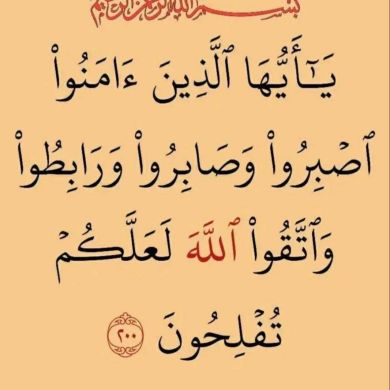 بسم الله الرحمن الرحيم
يَٰٓأَيُّهَا ٱلَّذِينَ ءَامَنُوا۟
ٱصْبِرُوا۟ وَصَابِرُوا۟ وَرَابِطُوا۟
وَٱتَّقُوا۟ ٱللَّهَ لَعَلَّكُمْ
تُفْلِحُونَ ٢٠٠